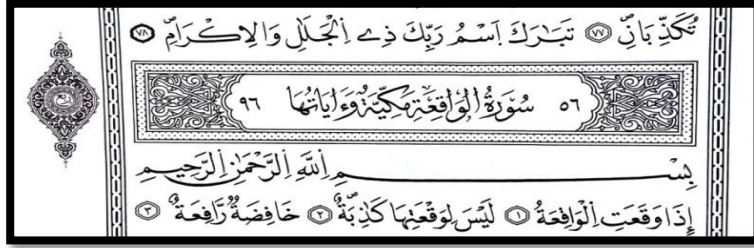 تُكَذِّبَانِ ۝٧٧ تَبَٰرَكَ اَسْمُ رَبِّكَ ذِے اِ۬لْجَلَٰلِ وَالِاكْرَامِ ۝٧٨
٥٦ سُورَةُ الْوَاقِعَةِ مَكِّيَّةٌ وَءَايَاتُهَا ٩٦
بِسْمِ اِ۬للَّهِ اِ۬لرَّحْمَٰنِ اِ۬لرَّحِيمِ
إِذَا وَقَعَتِ اِ۬لْوَاقِعَةُ ۝١ لَيْسَ لِوَقْعَتِهَا كَاذِبَةٌ ۝٢ خَافِضَةٌ رَّافِعَةٌ ۝٣